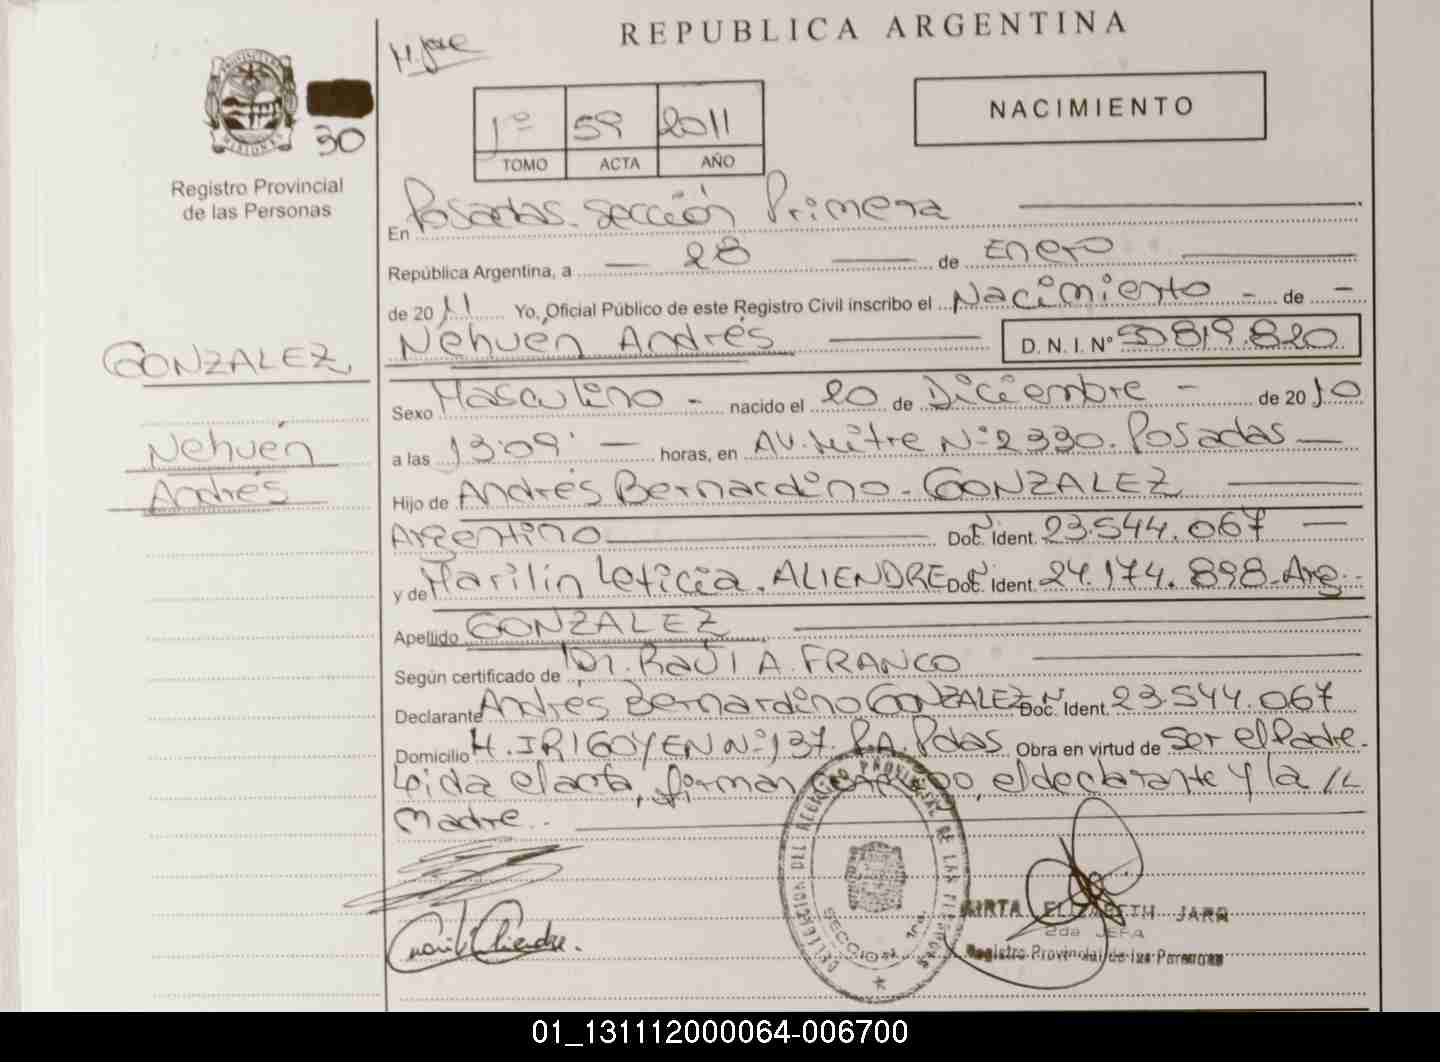 REPUBLICA ARGENTINA
H. Jose
30
1º 59 2011
TOMO ACTA AÑO
NACIMIENTO
Registro Provincial
de las Personas
En Posadas. Sección Primera
República Argentina, a 28 de Enero
de 2011 Yo, Oficial Público de este Registro Civil inscribo el Nacimiento - de -
Nehuén Andrés D. N. I. Nº 50819.820
GONZALEZ
Nehuén
Andrés
Sexo Masculino - nacido el 20 de Diciembre - de 2010
a las 13:09' horas, en AV. Mitre Nº 2330. Posadas
Hijo de Andrés Bernardino - GONZALEZ
Argentino Doc. Ident. Nº 23.544.067
y de Marilín Leticia. ALIENDRE Doc. Ident. Nº 24.174.898 - Arg.-
Apellido GONZALEZ
Según certificado de Dr. RaÚl A. FRANCO
Declarante Andrés Bernardino GONZALEZ Doc. Ident. Nº 23.544.067
Domicilio H. IRIGOYEN Nº 137. PA. Pdas Obra en virtud de Ser el Padre.
Leida el acta, firman el declarante y la
Madre.
DELEGACION DEL REGISTRO PROVINCIAL DE LAS PERSONAS
SECCION 1ra.
MIRTA ELIZABETH JARA
2da JEFA
Registro Provincial de las Personas
01_131112000064-006700